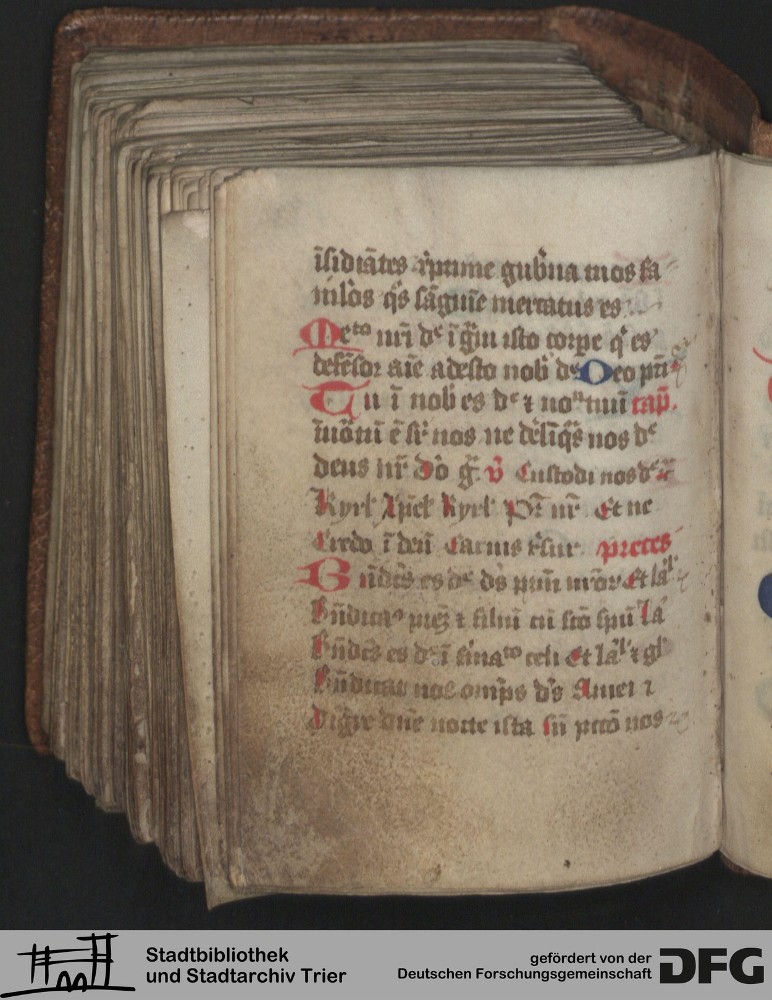 īsidiātes rp̄ime gub̄na tuos fa
mlōs q̄s sāguīe mercatus es
Meto nr̄i de ī ḡui isto corpe q es
defēsor aīe adesto nob ds Deo pr̄i
Tu ī nob es de ⁊ non tuū cap
īuōtū ē sr̄ nos ne dēlīq̄s nos de
deus nr̄ Do ḡ v̄ Custodi nos de
kyrl xp̄el kyrl Pr̄ nr̄ Et ne
Credo ī deū Carnis r̄sur preces
Bn̄dcs es de ds prm̄ nr̄or Et lal
Bn̄dicao prēz ⁊ filiū cū sco spū la
Bn̄dcs es de ī firmato celi Et lal ⁊ gl
Bn̄dicat nos omp̄s ds Amen ⁊
Digre dn̄e nocte ista sn̄ pccō nos
Stadtbibliothek
und Stadtarchiv Trier
gefördert von der
Deutschen Forschungsgemeinschaft
DFG